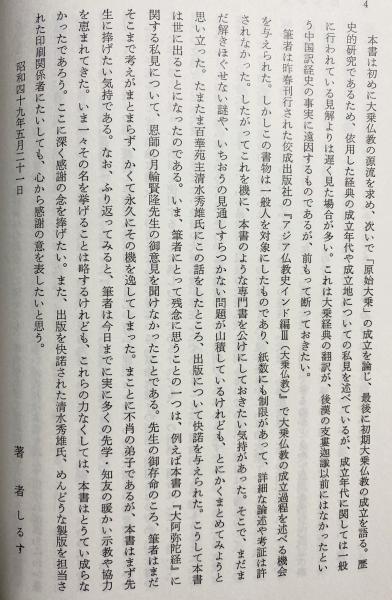 4
本書は初めに大乗仏教の源流を求め、次いで「原始大乗」の成立を論じ、最後に初期大乗仏教の成立を語る。歴
史的研究であるため、依用した経典の成立年代や成立地についての私見を述べているが、成立年代に関しては一般
に行われている見解よりは遅く見た場合が多い。これは大乗経典の翻訳が、後漢の支婁迦讖以前にはなかったとい
う中国訳経史の事実に遠因するものであるが、前もって断っておきたい。
筆者は昨春刊行された佼成出版社の『アジア仏教史インド編Ⅲ（大乗仏教）』で大乗仏教の成立過程を述べる機会
を与えられた。しかしこの書物は一般人を対象にしたものであり、紙数にも制限があって、詳細な論述や考証は許
されなかった。したがってこれを機に、本書のような専門書を公けにしておきたい気持があった。そこで、まだま
だ解きほぐせない謎や、いちおうの見通しすらつかない問題が山積しているけれども、とにかくまとめてみようと
思い立った。たまたま百華苑主清水秀雄氏にこの話をしたところ、出版について快諾を与えられた。こうして本書
は世に出ることになったのである。いま、筆者にとって残念に思うことの一つは、例えば本書の『大阿弥陀経』に
関する私見について、恩師の月輪賢隆先生の御意見を聞けなかったことである。先生の御存命のころ、筆者はまだ
そこまで考えがまとまらず、かくて永久にその機を逸してしまった。まことに不肖の弟子であるが、本書はまず先
生に捧げたい気持である。なお、ふり返ってみると、筆者は今日までに実に多くの先学・知友の暖かい示教や協力
を恵まれてきた。いま一々その名を挙げることは略するけれども、これらの力なくしては、本書はとうてい成らな
かったであろう。ここに深く感謝の念を捧げたい。また、出版を快諾された清水秀雄氏、めんどうな製版を担当さ
れた印刷関係者にたいしても、心から感謝の意を表したいと思う。
昭和四十九年五月二十一日
著者しるす